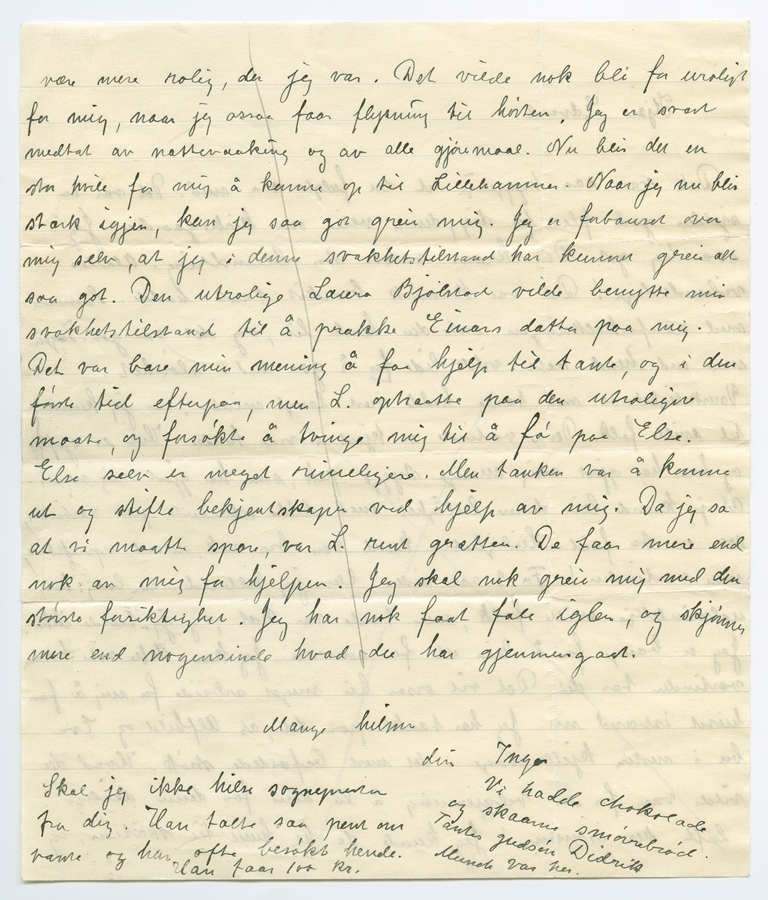 være mere rolig, der jeg var. Det vilde nok bli for uroligt
for mig, naar jeg ossaa faar flytning til høsten. Jeg er svært
medtat av nattevaaking og av alle gjøremaal. Nu blir det en
stor hvile for mig å komme op til Lillehammer. Naar jeg nu blir
stærk igjen, kan jeg saa got greie mig. Jeg er forbauset over
mig selv, at jeg i denne svakhetstilstand har kunnet greie alt
saa got. Den utrolige Laura Bjølstad vilde benytte min
svakhetstilstand til å prakke Einars datter paa mig.
Det var bare min mening å faa hjælp til tante, og i den
første tid efterpaa, men L. optraatte paa den utroligste
maate, og forsøkte å tvinge mig til å få paa Else.
Else selv er meget rimeligere. Men tanken var å komme
ut og stifte bekjentskaper ved hjælp av mig. Da jeg sa
at vi maatte spare, var L. rent grætten. De faar mere end
nok av mig for hjelpen. Jeg skal nok greie mig med den
største forsiktighet. Jeg har nok faat føle iglen, og skjønner
mere end nogensinde hvad du har gjennemgaat.
Mange hilsner
din Inger
Skal jeg ikke hilse sognepresten
fra dig. Han talte saa pent om
tante og har ofte besøkt hende.
Han faar 100 kr.
Vi hadde chokolade
og skaarne smørrebrød.
Tantes gudsøn Didrik
Munch var her.